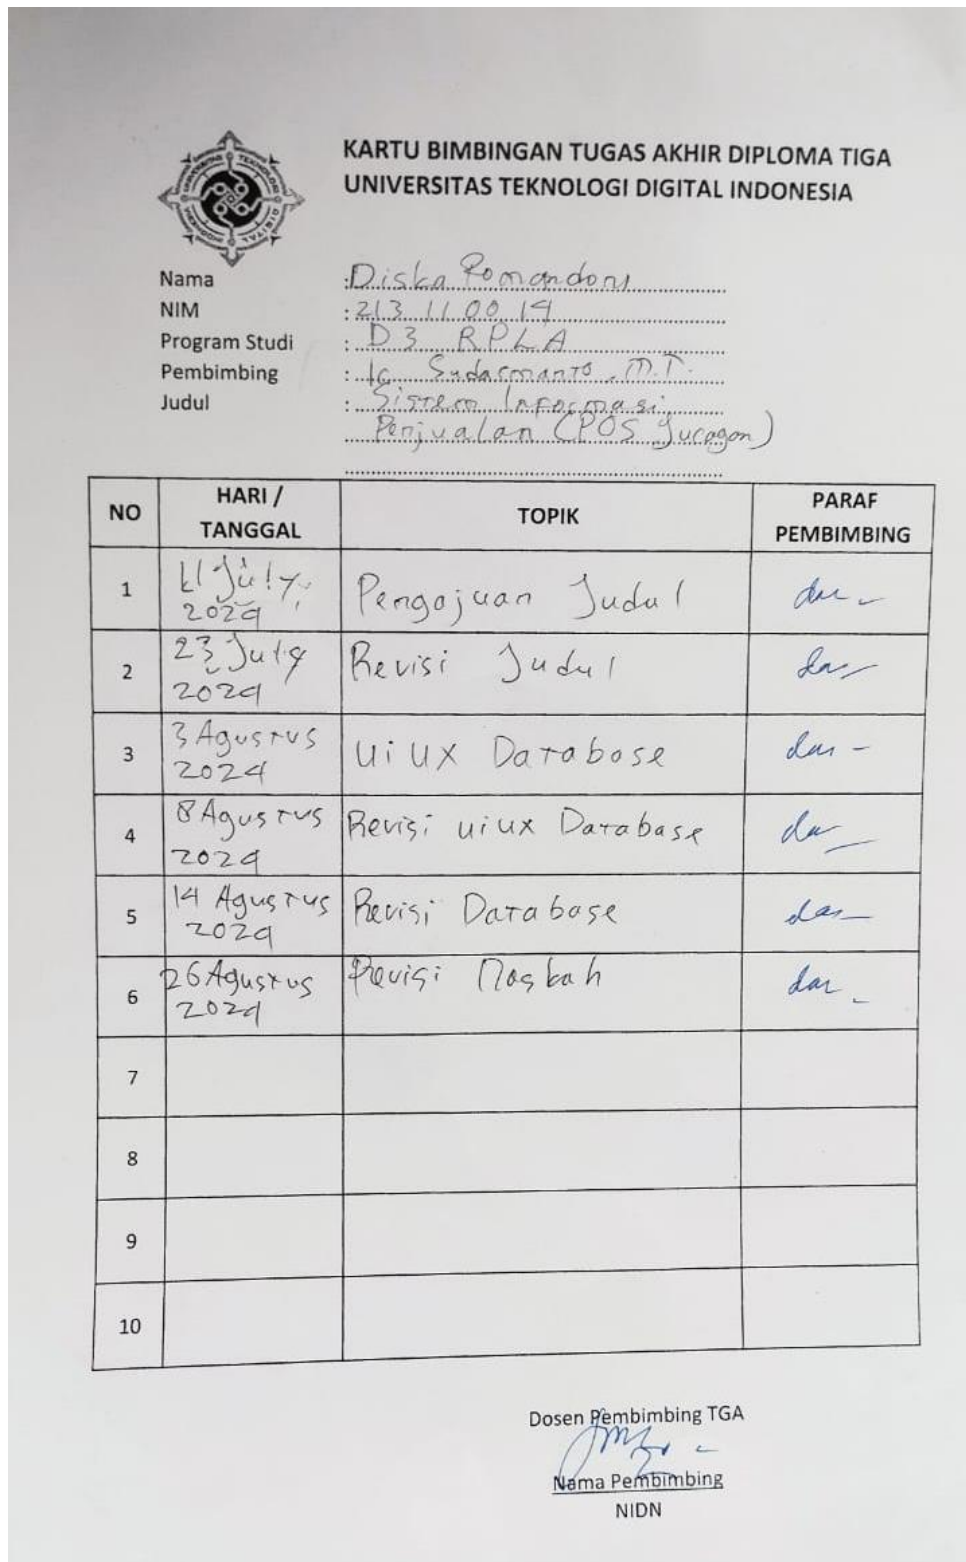 KARTU BIMBINGAN TUGAS AKHIR DIPLOMA TIGA
UNIVERSITAS TEKNOLOGI DIGITAL INDONESIA
Nama : Diska Romandoni
NIM : 213 11 00 14
Program Studi : D3 RPLA
Pembimbing : Ir Sudarmanto, M.T.
Judul : Sistem Informasi
Penjualan (POS Juragan)
NO HARI / TANGGAL TOPIK PARAF PEMBIMBING
1 11 July 2024 Pengajuan Judul
2 23 July 2024 Revisi Judul
3 3 Agustus 2024 Ui UX Database
4 8 Agustus 2024 Revisi ui ux Database
5 14 Agustus 2024 Revisi Database
6 26 Agustus 2024 Revisi Naskah
7
8
9
10
Dosen Pembimbing TGA
Nama Pembimbing
NIDN